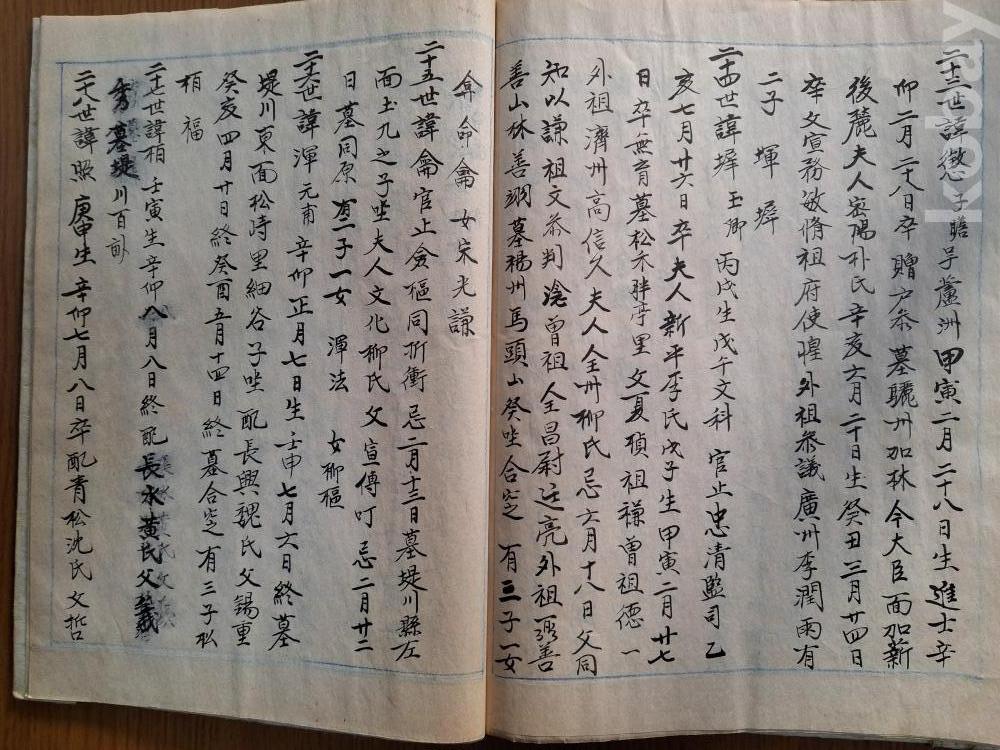 二十三世諱懲 子瞻 号蘆洲 甲寅二月二十八日生進士辛
卯二月二十八日卒贈戶參墓驪州加林今大臣面加薪
後麓夫人密陽朴氏辛亥六月二十日生癸丑三月廿四日
卒父宣務敏脩祖府使惺外祖參議廣州李潤雨有
二子 㻶 墀
二十四世諱墀 玉卿 丙戌生戊午文科 官止忠清監司乙
亥七月廿六日卒夫人新平李氏戊子生甲寅二月廿七
日卒無育墓松禾胖亭里父夏禎祖稑曾祖德一
外祖濟州高信久夫人全州柳氏忌六月十八日父同
知以謙祖文恭判淰曾祖全昌尉廷亮外祖善
善山林善翊墓楊州馬頭山癸坐合窆有三子一女
弇命龠 女宋光謙
二十五世諱龠官止僉樞同折衝忌二月十三日墓堤川縣左
面土九之子坐夫人文化柳氏父宣傳 忌二月廿二
日墓同原 有二子一女 渾法 女柳樞
二十六世諱渾 元甫 辛卯正月七日生壬申七月六日終墓
堤川東面松峙里細谷子坐配長興魏氏父錫重
癸亥四月廿日終癸酉五月十四日終墓合窆有三子松
栢 福
二十七世諱栢 壬寅生辛卯八月八日終配長水黃氏父
秀墓堤川百
二十八世諱照 庚申生辛卯七月八日卒配青松沈氏父哲
kobay